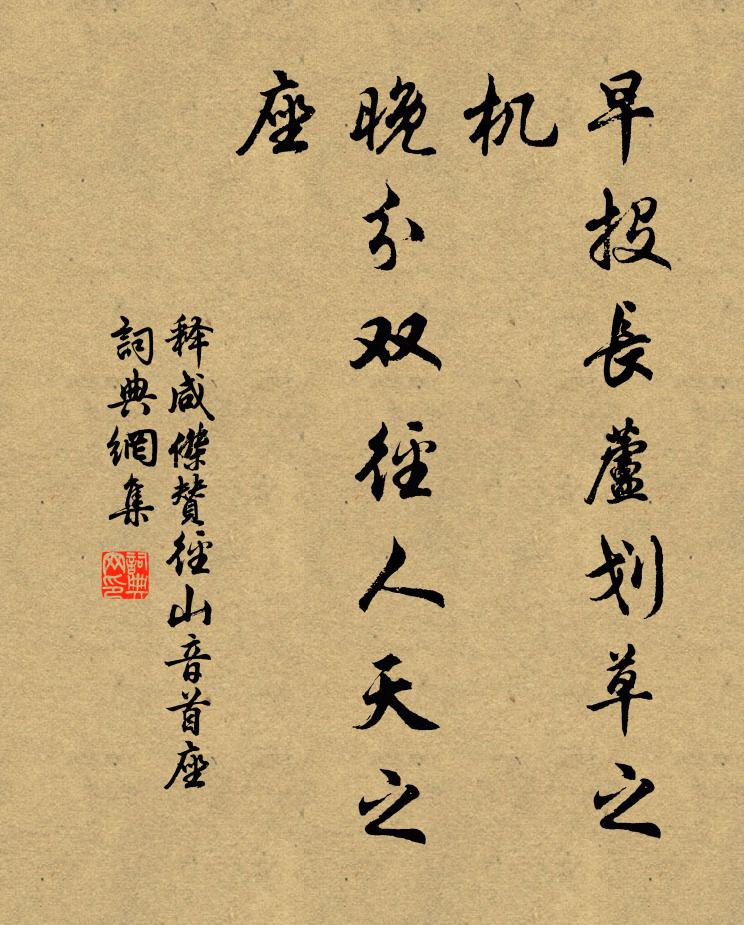 早投長蘆划草之
机
晚分双徑人天之
座
释咸傑贊徑山音首座
詞典網集
詞典
网印